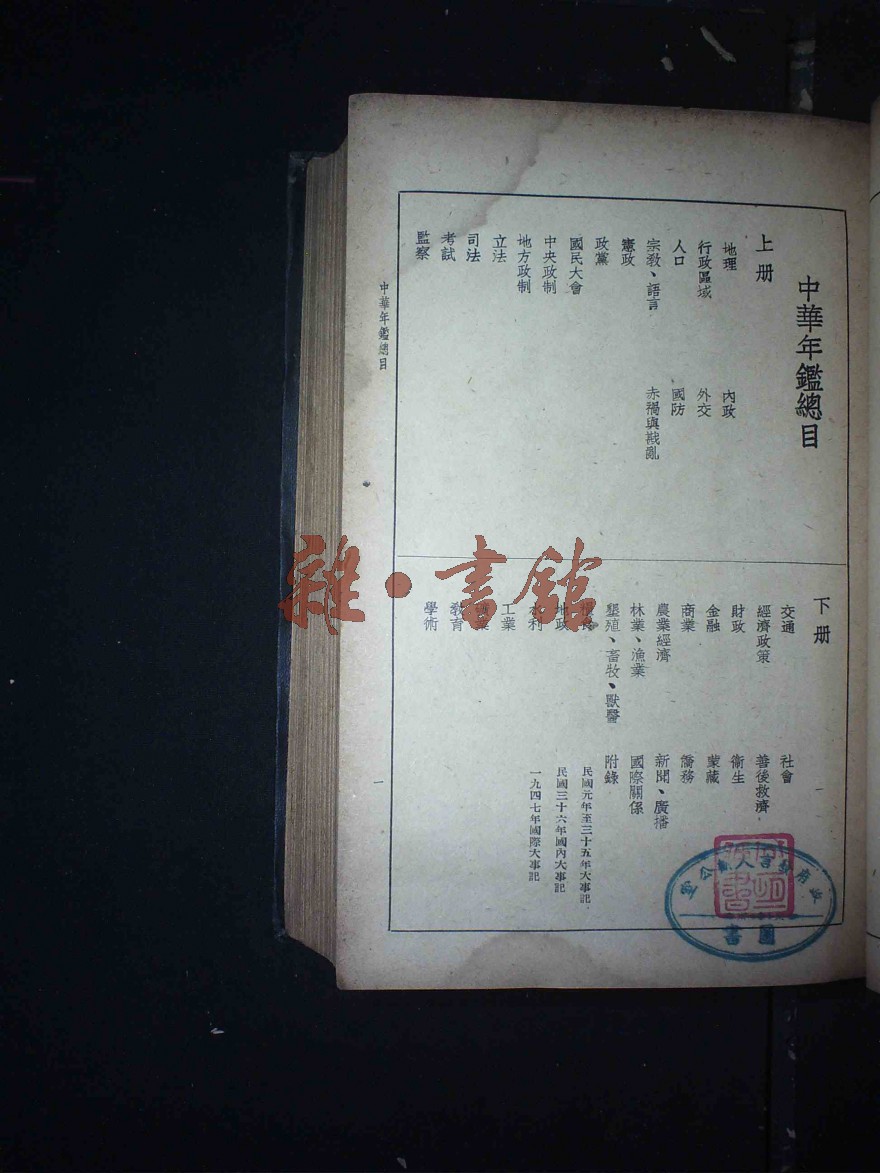 中華年鑑總目
上册
地理
行政區域
人口
宗教、語言
憲政
政黨
國民大會
中央政制
地方政制
立法
司法
考試
監察
內政
外交
國防
赤禍與戡亂
下册
交通
經濟政策
財政
金融
商業
農業經濟
林業、漁業
墾殖、畜牧、獸醫
糧食
地政
水利
工業
礦業
教育
學術
社會
善後救濟
衞生
蒙藏
僑務
新聞、廣播
國際關係
附錄
民國元年至三十五年大事記
民國三十六年國內大事記
一九四七年國際大事記
中華年鑑總目
一
雜·書館
政府發言人辦公室
圖書